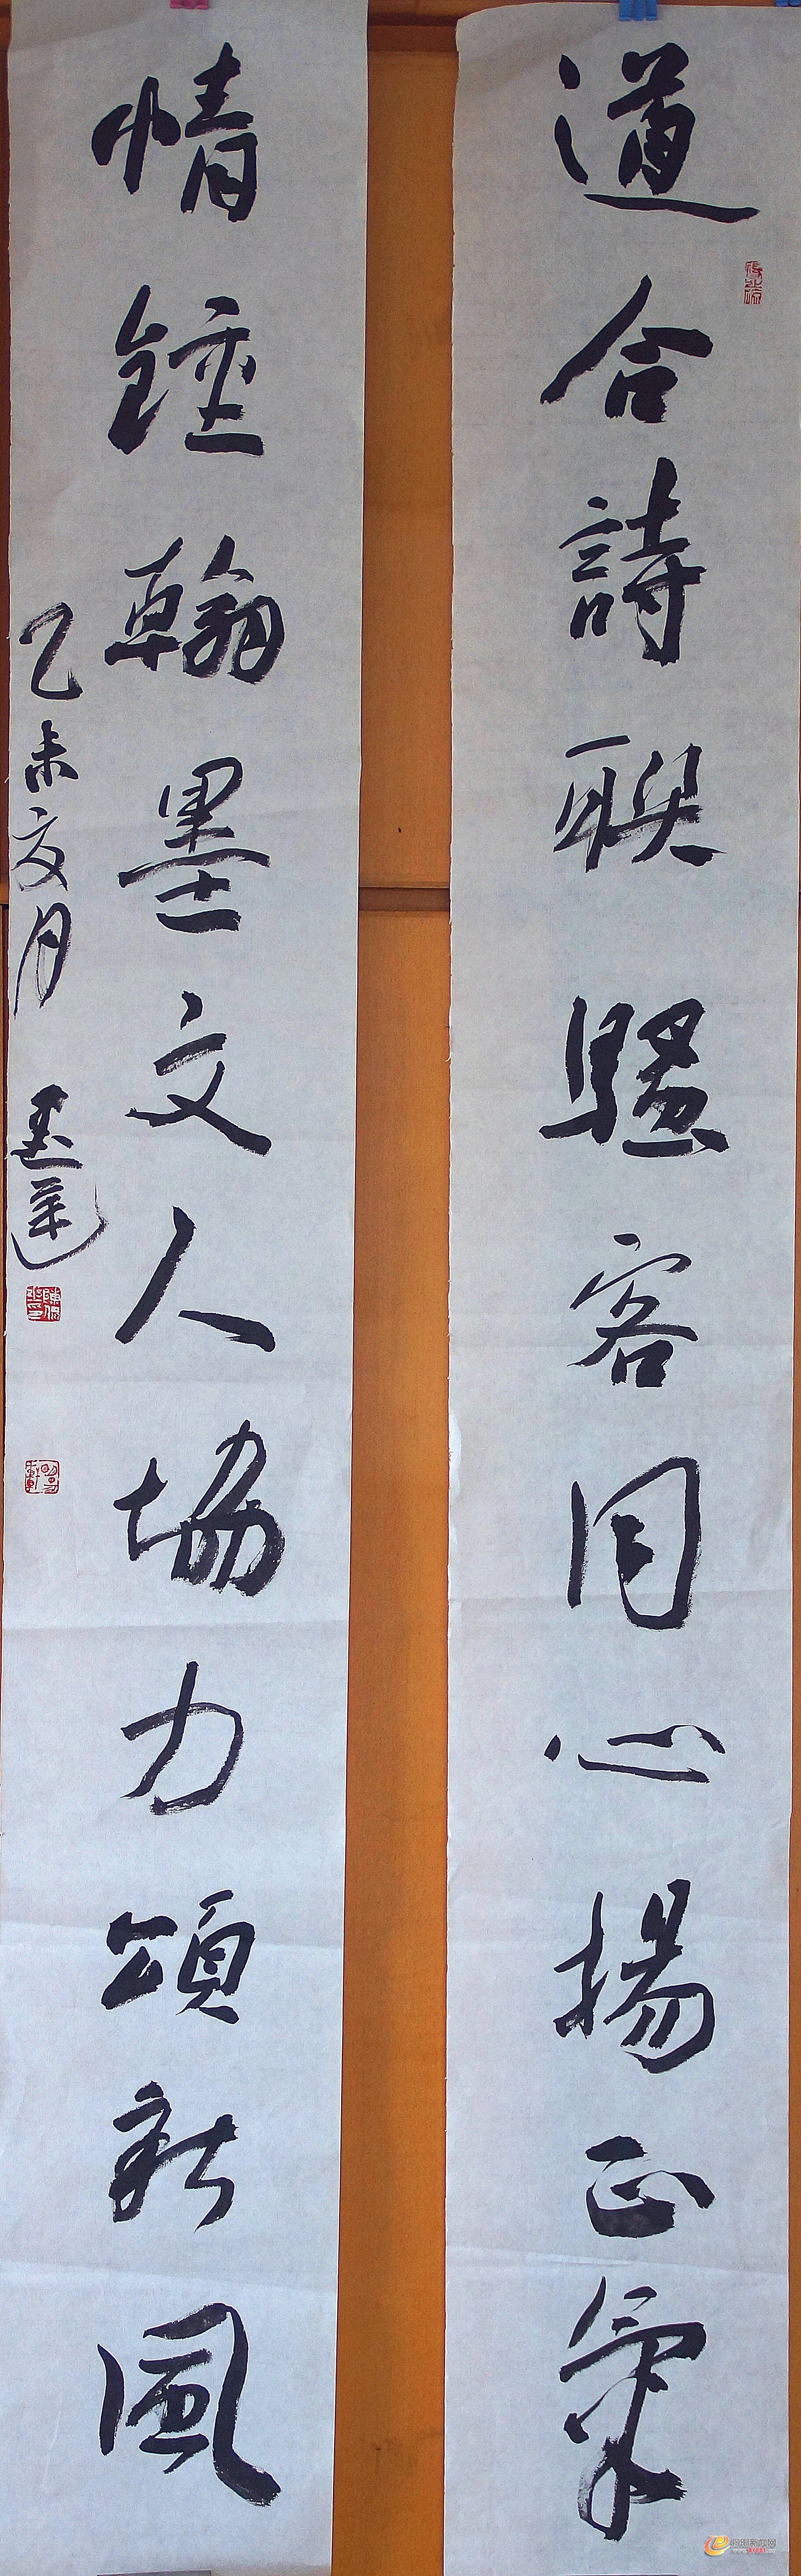 道合詩聯騷客同心揚正氣
情鍾翰墨文人協力頌新風
乙未文月